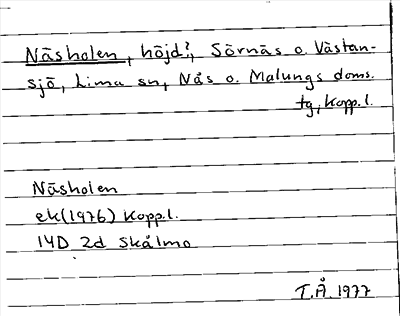 Näsholen, höjd?, Sörnäs o. Västan-
sjö, Lima sn, Nås o. Malungs doms.
tg, Kopp.l.
Näsholen
ek(1976) Kopp.l.
14D 2d Skålmo
T.Å. 1977